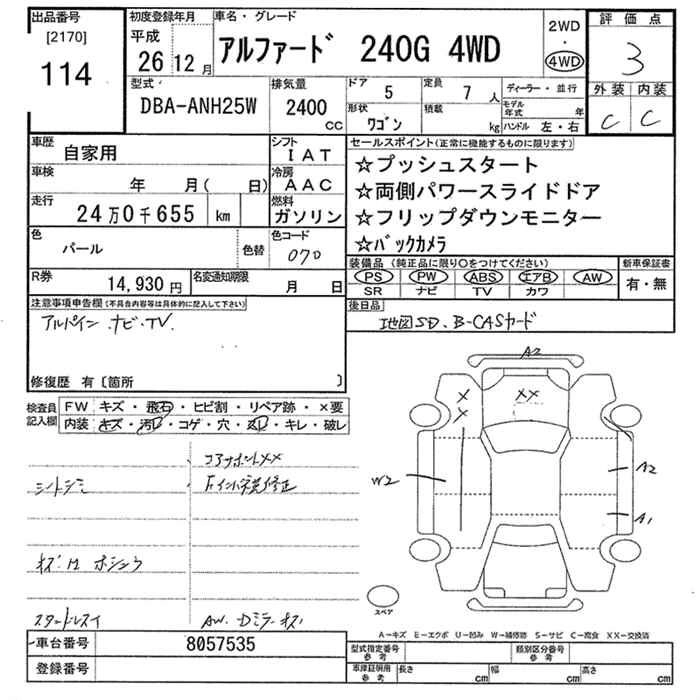 出品番号 初度登録年月 車名・グレード 評価点
[2170] 平成
114 26年12月 アルファード 240G 4WD 2WD・4WD 3
外装 内装
C C
型式 DBA-ANH25W 排気量 2400 CC
ドア 5 定員 7人 ディーラー・並行
形状 ワゴン 積載 kg モデル年式 年
ハンドル 左・右
車歴 自家用 シフト IAT
車検 年 月( 日) 冷房 AAC
走行 24万0千655 km 燃料 ガソリン
色 パール 色替 色コード 070
R券 14,930円 名変通知期限 月 日
セールスポイント(正常に機能するものに限ります)
☆プッシュスタート
☆両側パワースライドドア
☆フリップダウンモニター
☆バックカメラ
装備品(純正品に限り○をつけてください) 新車保証書
PS PW ABS エアB AW 有・無
SR ナビ TV カワ
後日品
地図SD、B-CASカード
注意事項申告欄(不具合内容等は具体的に記入して下さい)
アルパイン ナビ・TV
修復歴 有〔箇所 〕
検査員記入欄 FW キズ・飛石・ヒビ割・リペア跡・×要
内装 キズ・汚れ・コゲ・穴・スレ・キレ・破レ
コアサポートXX
シートシミ
スタッドレス
AW、Dミラーキズ
A2
X XX
X
W2 A2
A1
スペア
A－キズ E－エクボ U－凹み W－補修跡 S－サビ C－腐食 XX－交換済
車台番号 8057535
登録番号
型式指定番号 参考 類別区分番号 参考
車庫証明用 参考 長さ cm 幅 cm 高さ cm